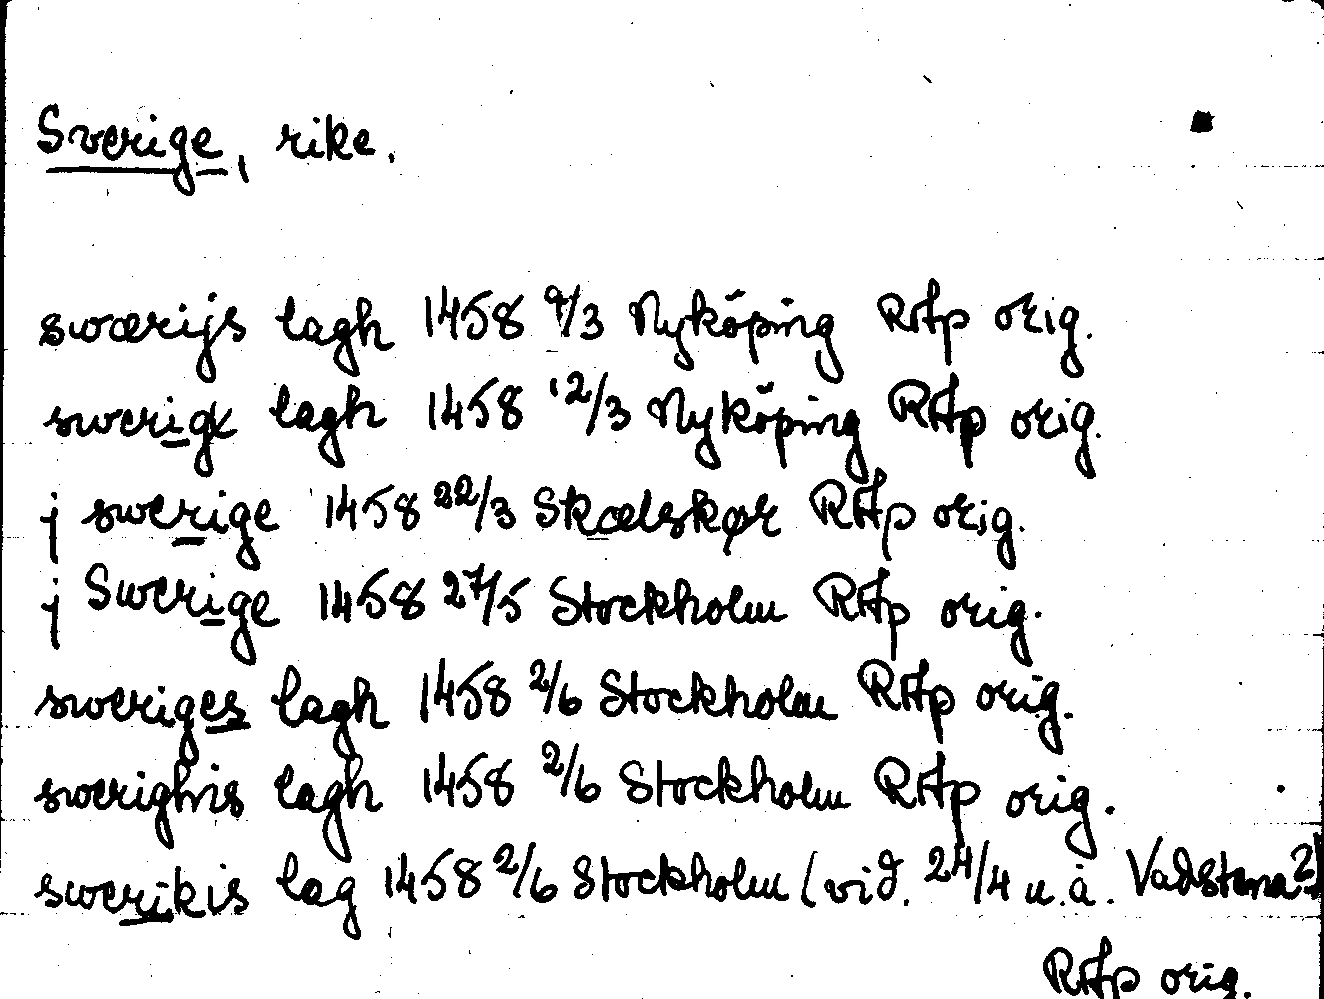 Sverige, rike.
swærijs lagh 1458 9/3 Nyköping RAp orig.
swerigx lagh 1458 12/3 Nyköping RAp orig.
j swerige 1458 22/3 Skælskør RAp orig.
j Swerige 1458 27/5 Stockholm RAp orig.
sweriges lagh 1458 2/6 Stockholm RAp orig.
swerighis lagh 1458 2/6 Stockholm RAp orig.
swerikis lag 1458 2/6 Stockholm (vid. 24/4 u.å. Vadstena?)
RAp orig.